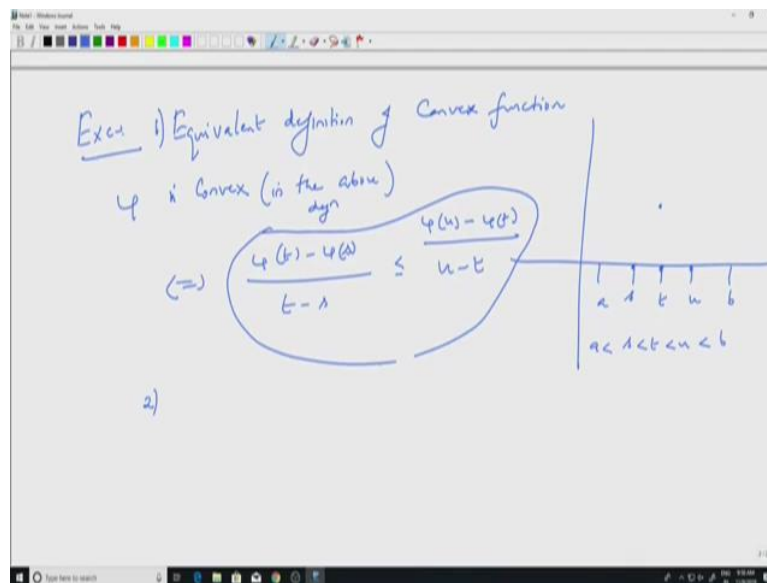 Note1 - Windows Journal
File Edit View Insert Actions Tools Help
Exer 1) Equivalent definition of Convex function
φ is Convex (in the above defn)
(=) φ(t) - φ(s) / t - s ≤ φ(u) - φ(t) / u - t
a s t u b
a < s < t < u < b
2)
Type here to search
ENG